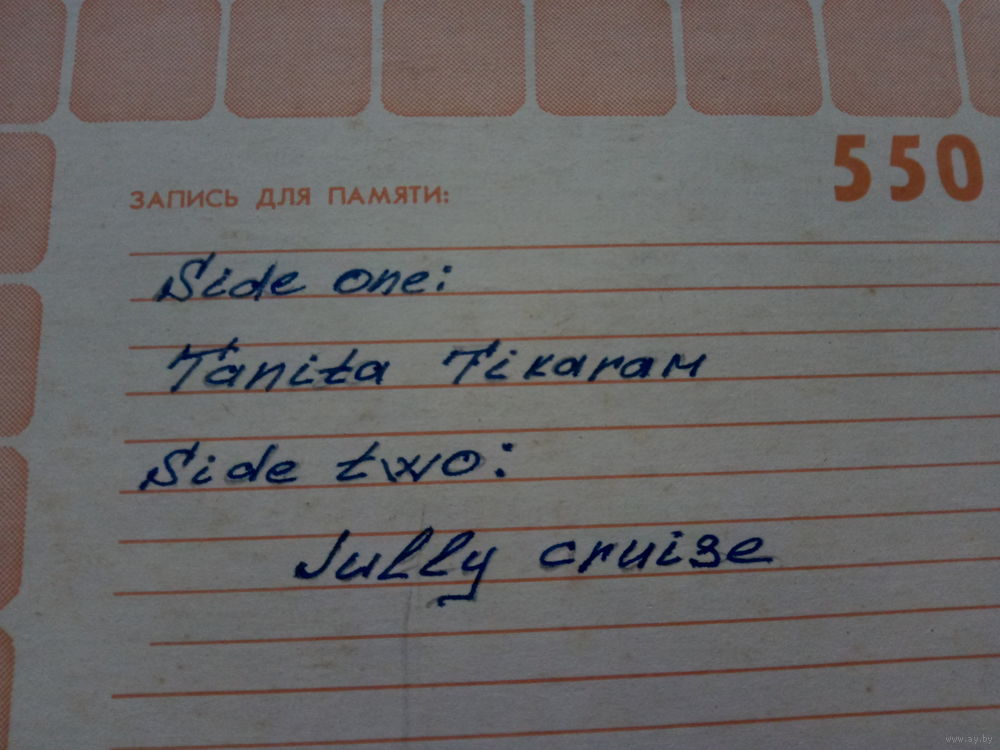 550
ЗАПИСЬ ДЛЯ ПАМЯТИ:
Side one:
Tanita Tikaram
Side two:
Jully cruise
www.ay.by